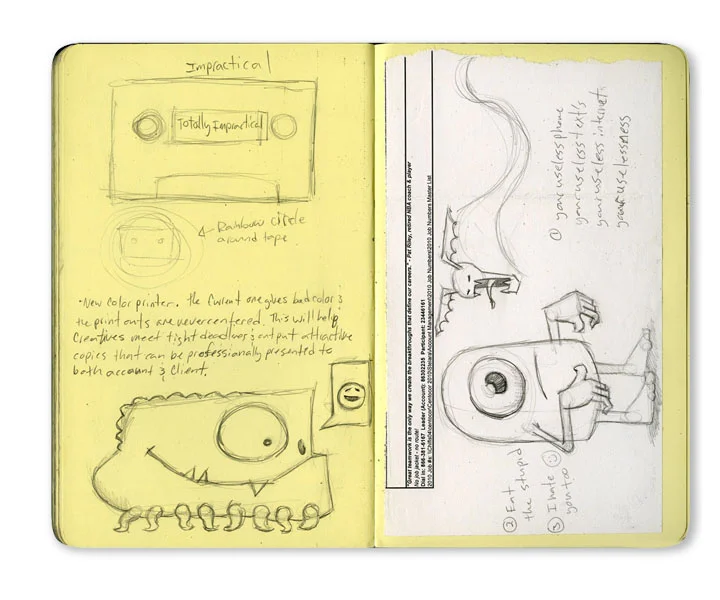 Impractical
Totally Impractical
Rainbow circle
around tape
• New color printer. The current one gives bad color &
the print outs are never centered. This will help
Creatives meet tight deadlines & output attractive
copies that can be professionally presented to
both account & client.
"Great teamwork is the only way we create the breakthroughs that define our careers." - Pat Riley, retired NBA coach & player
No job jacket - no route!
Dial in: 866-381-6167 Leader (Account): 86302235 Participant: 23446161
① your useless phone
your useless texts
your useless internet
your uselessness
② Eat
the stupid
③ I hate
you too